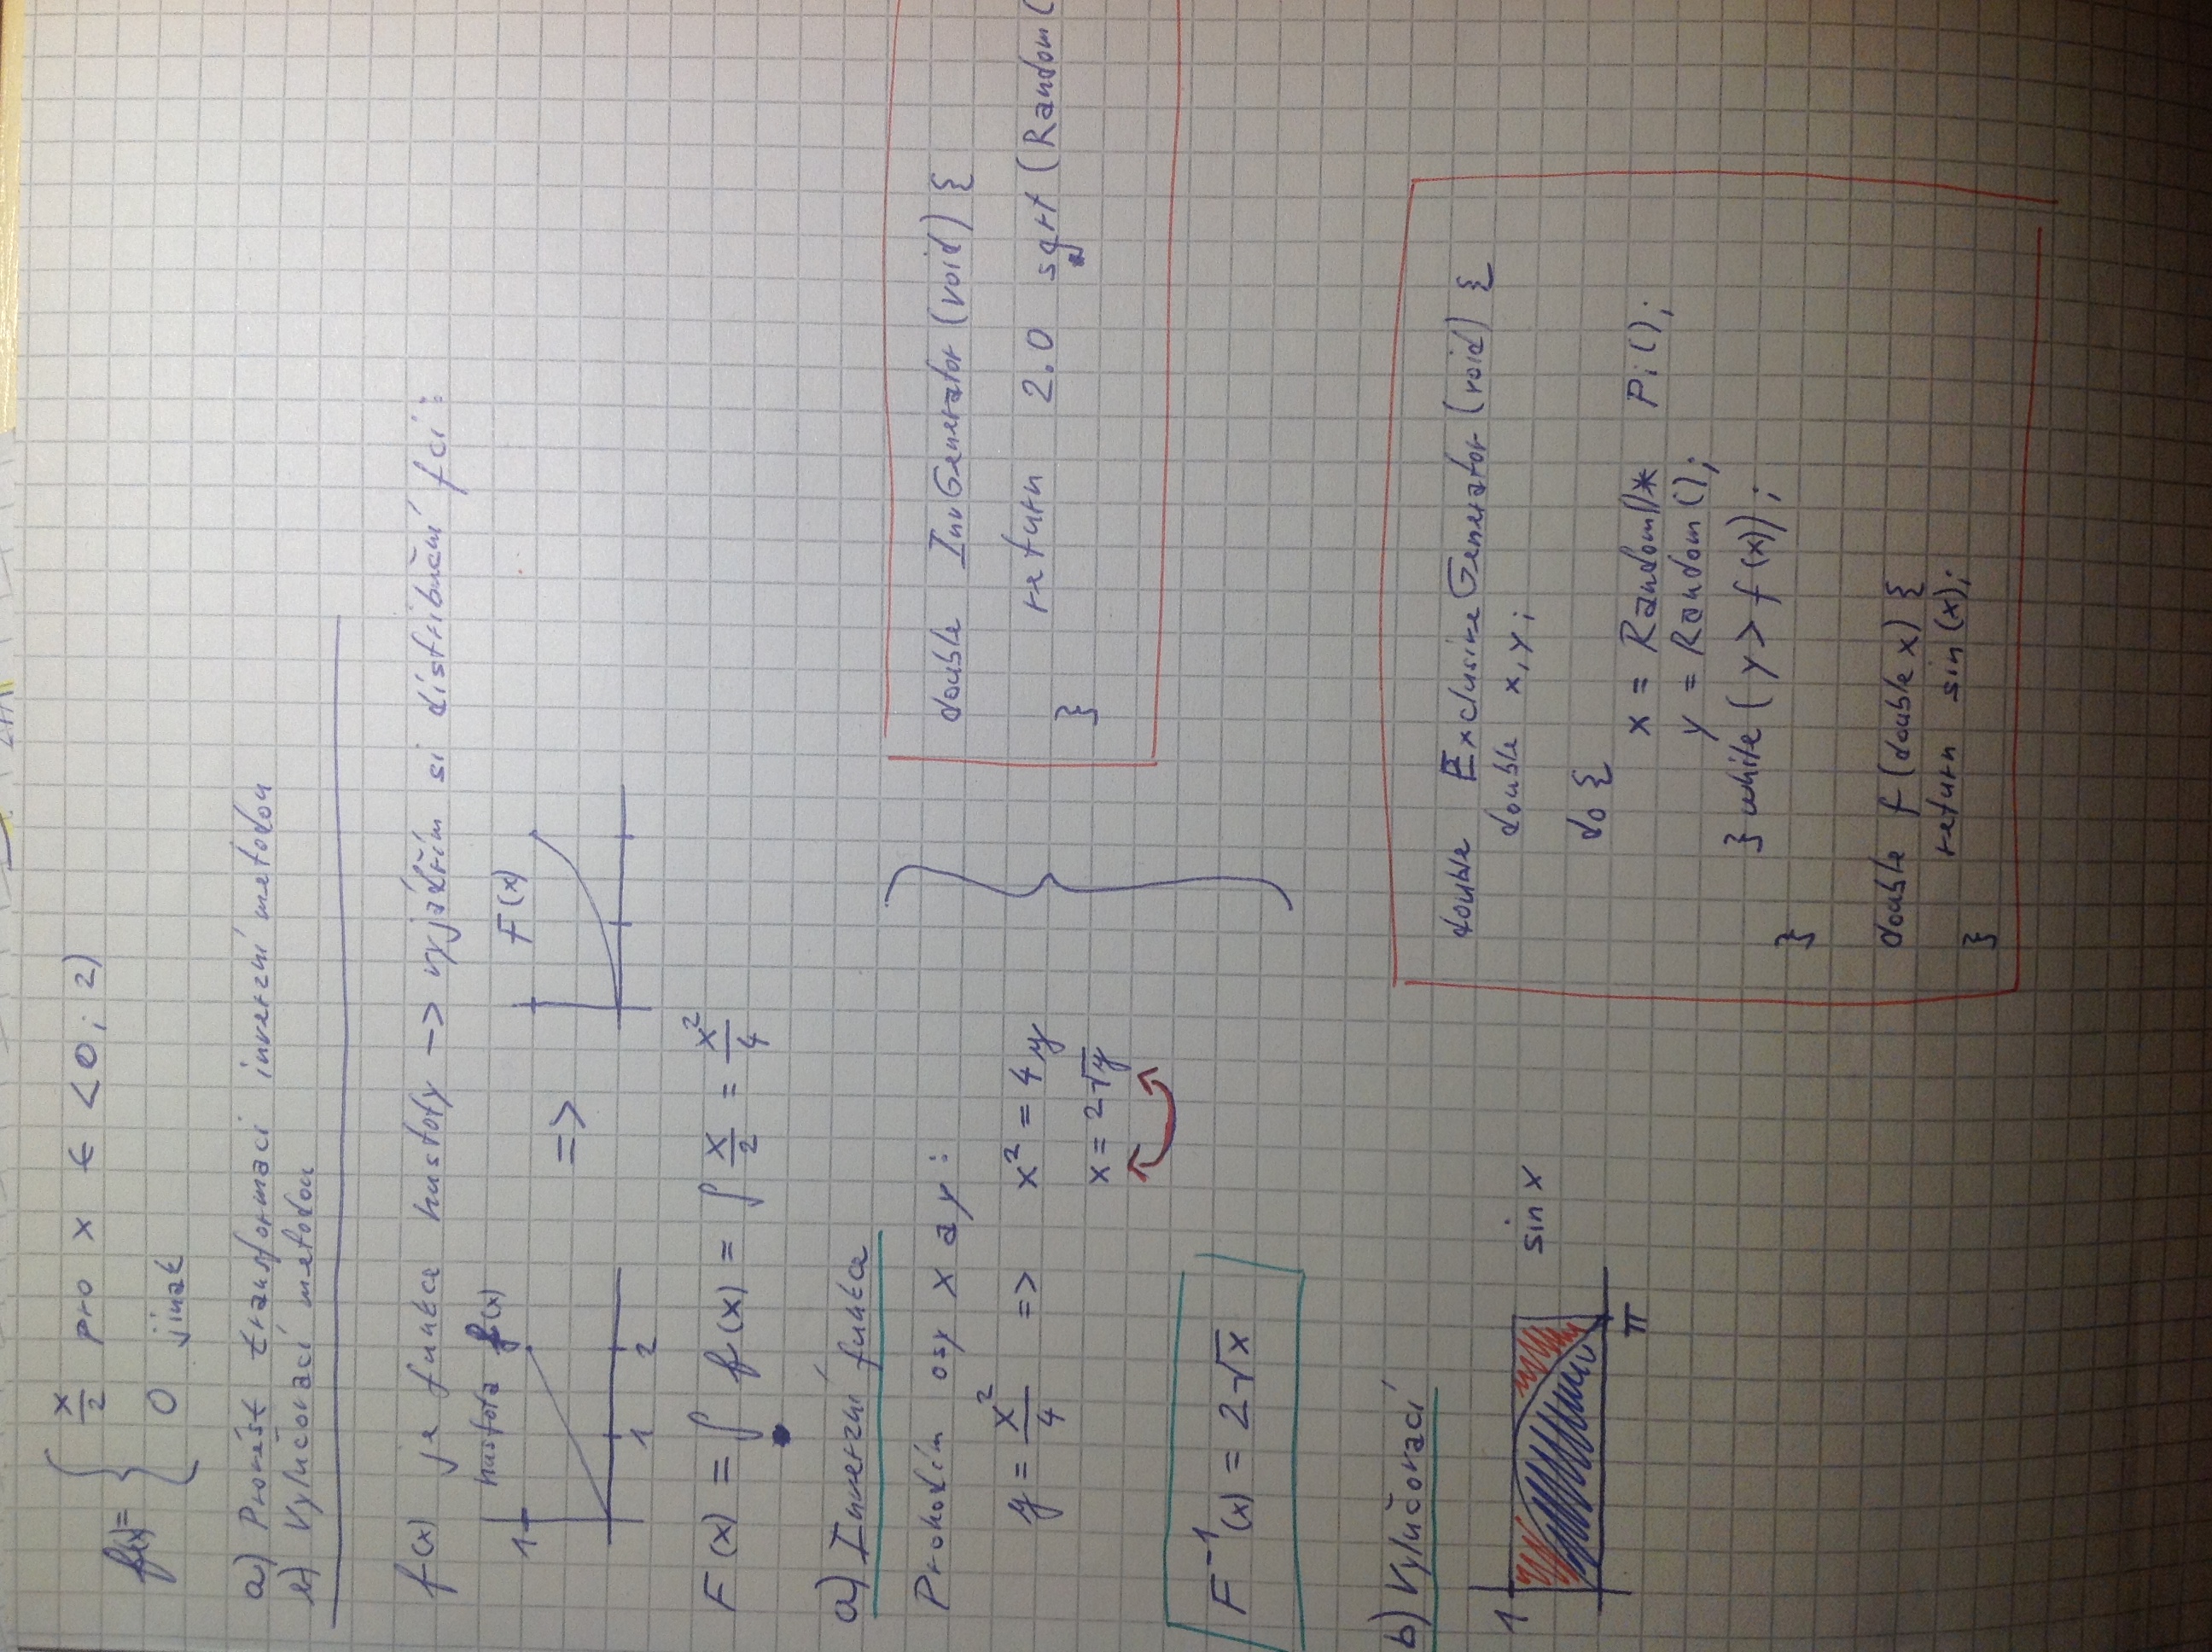 f(x) = { x/2 pro x ∈ <0; 2)
0 jinak
a) Provést transformaci inverzní metodou
b) Vylučovací metodou
f(x) je funkce hustoty -> vyjádřím si distribuční fci:
hustota f(x)
1
1 2
=>
F(x)
F(x) = ∫ f(x) = ∫ x/2 = x²/4
a) Inverzní funkce
Prohodím osy x a y:
y = x²/4 => x² = 4y
x = 2√y
F⁻¹(x) = 2√x
double InvGenerator(void) {
return 2.0 sqrt(Random(
}
b) Vylučovací
1
π
sin x
double ExclusiveGenerator(void) {
double x,y;
do {
x = Random()* Pi();
y = Random();
} while (y > f(x));
}
double f(double x) {
return sin(x);
}